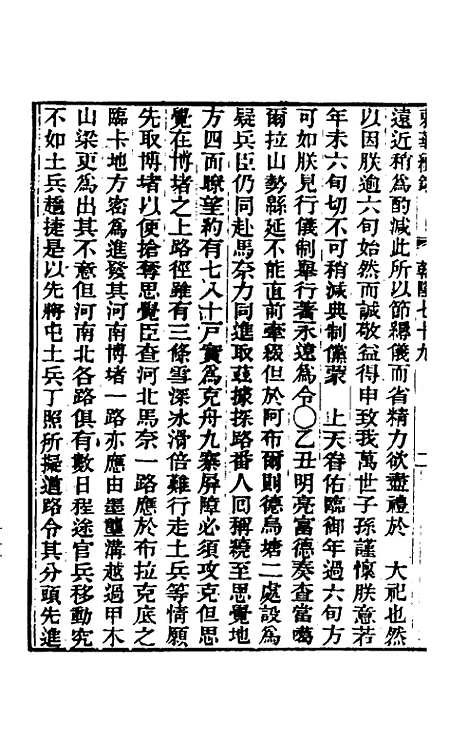 東華續錄 乾隆七十九 二
遠近稍為酌減此所以節縟儀而省精力欲盡禮於 大祀也然
以因朕逾六旬始然而誠敬益得申致我萬世子孫謹懷朕意若
年未六旬切不可稍減典制儻蒙 上天眷佑臨御年過六旬方
可如朕見行儀制舉行著永遠為令○乙丑明亮富德奏查當噶
爾拉山勢緜延不能直前牽綴但於阿布爾則德烏塘二處設為
疑兵臣仍同赴馬奈力同進取茲據探路番人回稱繞至思覺地
方四面瞭望約有七八十戶實為克舟九寨屏障必須攻克但思
覺在博堵之上路徑雖有三條雪深冰滑倍難行走土兵等情願
先取博堵以便搶奪思覺臣查河北馬奈一路應於布拉克底之
臨卡地方密為進發其河南博堵一路亦應由墨壟溝越過甲木
山梁更為出其不意但河南北各路俱有數日程途官兵移動究
不如土兵趫捷是以先將屯土兵丁照所擬道路令其分頭先進